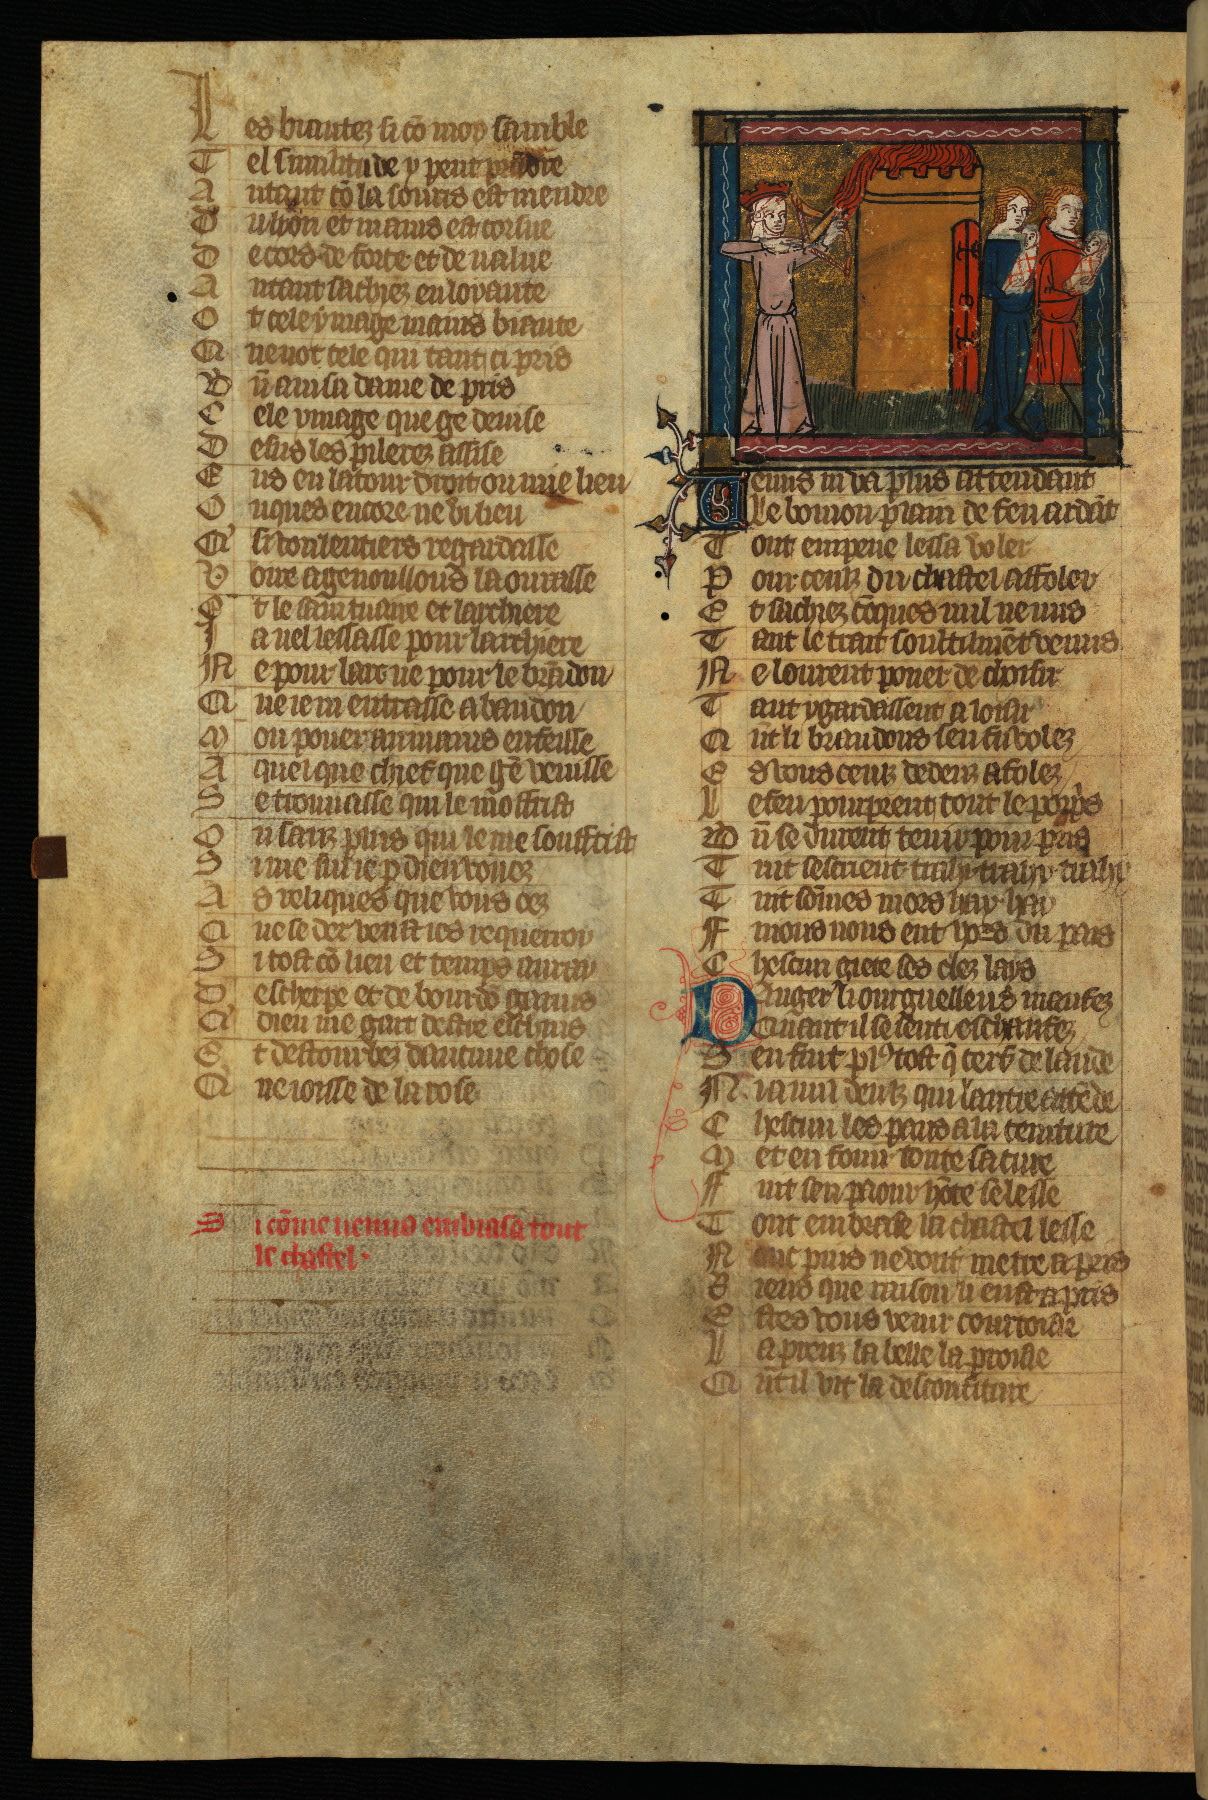 Les biautez si cō moy samble
Tel similitude y peut prādre
Autant cō la souris est mendre
Du lyon et mains est corsue
De cors de force et de value
Autant sachiez en loyaute
Ot cele ymage mains biaute
Que not cele qui tant ci pris
Bn̄ avisa dame de pris
Cele ymage que ge devise
Desus les pilerez assise
Ens en la tour droit ou mie lieu
Onques encore ne vi lieu
Que si voulentiers regardasse
Voire agenoullons laourasse
Et le sāintuaire et larchiere
Ja nel lessasse pour larchiere
Ne pour larc ne pour le brādon
Que ie ni entrasse a bandon
Mon pouer au mains en feisse
A quelque chief que gē venisse
Se trouvasse qui le moffrist
Ou sanz plus qui le me souffrist
Si me sui ie p dieu vouez
As reliques que vous oez
Que se dex plest ies requerroy
Si tost cō lieu et temps auray
Descherpe et de bourdō garnis
Que dieu me gart destre eschnis
Et destourbez dautune chose
Que ioisse de la rose
Si cōme venus embrasa tout
le chastel
Venus ni va plus attendant
Le boujon plain de feu ardāt
Tout empene lessa voler
Pour ceulz du chastel affoler
Et sachiez cōques nul ne nus
Tant le trait soultilmēt venus
Ne lourent pouer de choisir
Tant ygardassent a loisir
Qn̄t li brandons sen fu volez
Es vous ceulz dedenz afolez
Le feu pourprent tout le porpris
Bn̄ se durent tenir pour pris
Tuit sescrient trahy trahy trahy
Tuit sōmes mors hay hay
Fuions nous ent hors du pais
Chescun giete ses clez lays
Dangier li ourguelleus maufez
Quant il se senti eschaufez
Sen fuit pl9 tost q̄ cerf de lande
Ni a nul deulz qui lautre attēde
Chescun les pans a la ceinture
Met en fouir toute sa cure
Fuit sen paour hōte selesse
Tout embrase la chastel lesse
Nanc puis ne vout metre a pris
Riens que raison li eust apris
Estes vous venir courtoisie
La preuz la belle la proisie
Qn̄t il vit la desconfiture